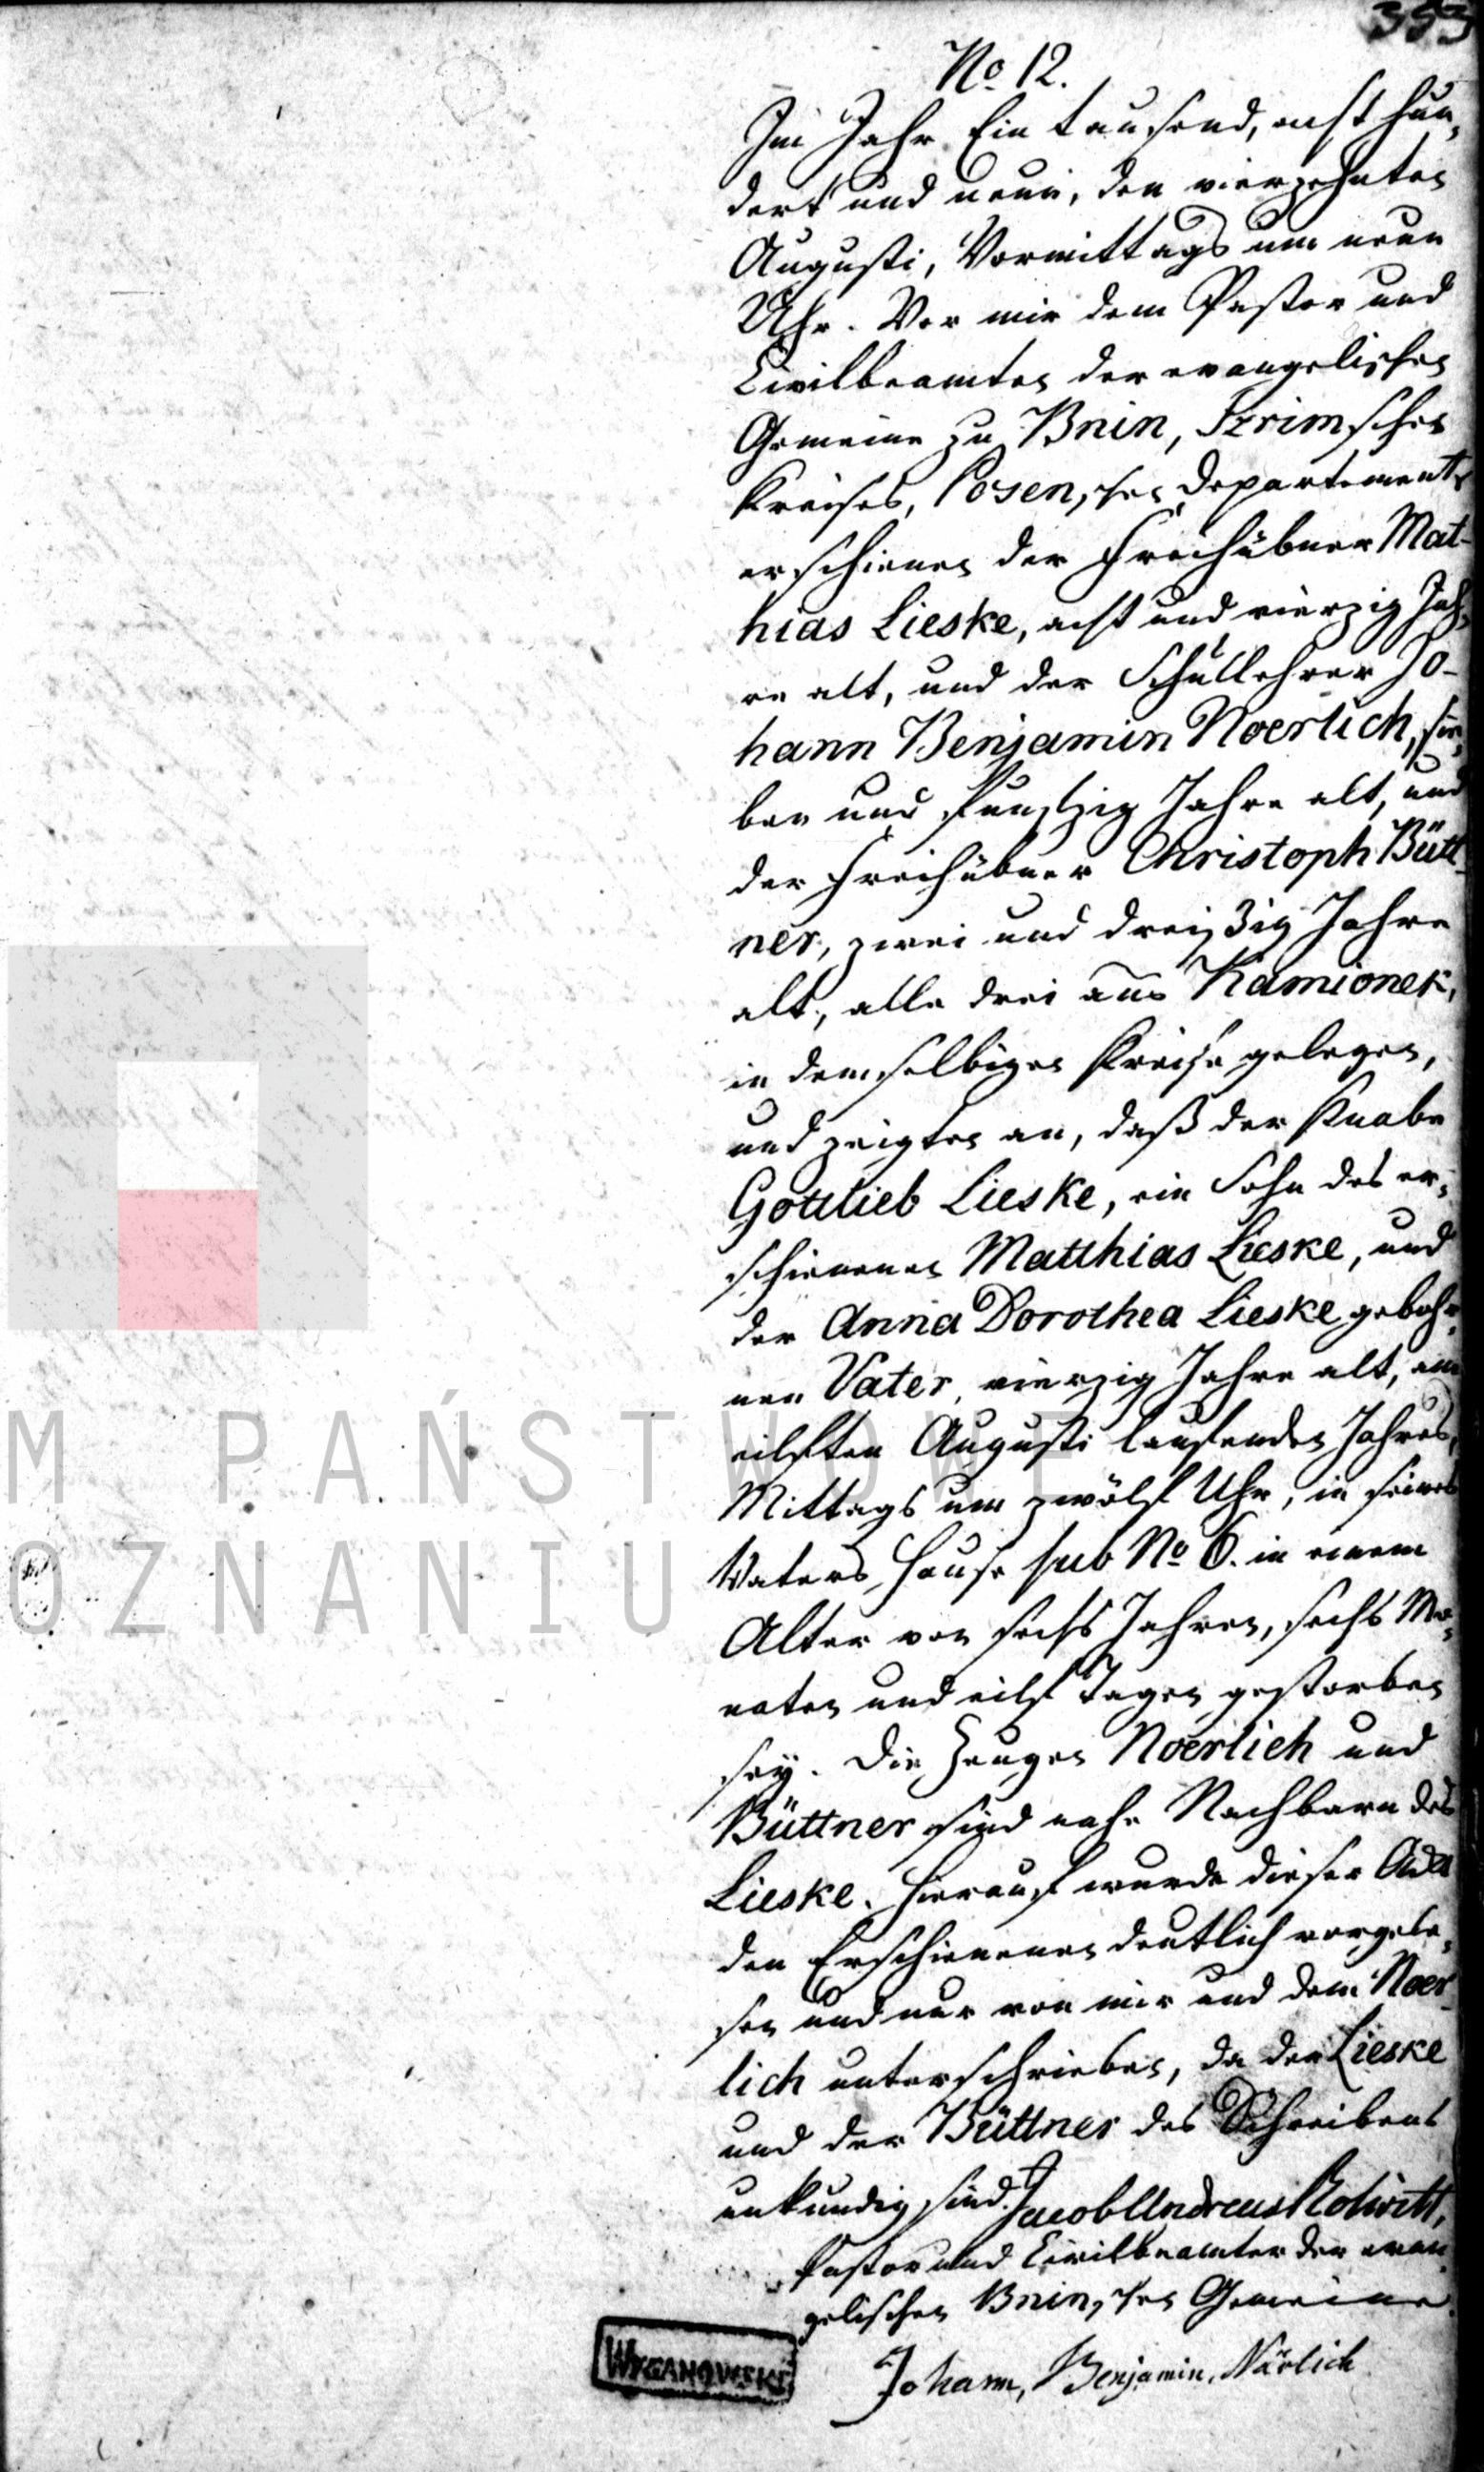 353
No 12.
Im Jahr Ein tausend, acht hun,
dert und neun, den vierzehnten
Augusti, Vormittags um neun
Uhr. Vor mir dem Pastor und
Civilbeamten der evangelischen
Gemeine zu Bnin, Szrimschen
Kreises, Posenschen Departements
erschienen der Freihübner Mat-
hias Lieske, acht und vierzig Jah,
re alt, und der Schullehrer Jo-
hann Benjamin Noerlich, sie,
ben und funfzig Jahre alt, und
der Freihübner Christoph Bütt-
ner, zwei und dreißig Jahre
alt, alle drei aus Kamionek,
in demselbigen Kreise gelegen,
und zeigten an, daß der Knabe
Gottlieb Lieske, ein Sohn des er,
schienenen Matthias Lieske, und
der Anna Dorothea Lieske gebohr,
nen Vater, vierzig Jahre alt, am
eilften Augusti laufenden Jahres,
Mittags um zwölf Uhr, in seines
Vaters Hause sub No 6. in einem
Alter von sechs Jahren, sechs Mo,
naten und eilf Tagen gestorben
sey. Die Zeugen Noerlich und
Büttner sind nahe Nachbarn des
Lieske. Hierauf wurde dieser Act
den Erschienenen deutlich vorgele,
sen und nur von mir und dem Noer-
lich unterschrieben, da der Lieske
und der Büttner des Schreibens
unkundig sind. Jacob Andreas
Pastor und Civilbeamter der evan,
gelischen Bninschen Gemeine.
Johann, Benjamin, Närlich
M PAŃSTWOWE
OZNANIU